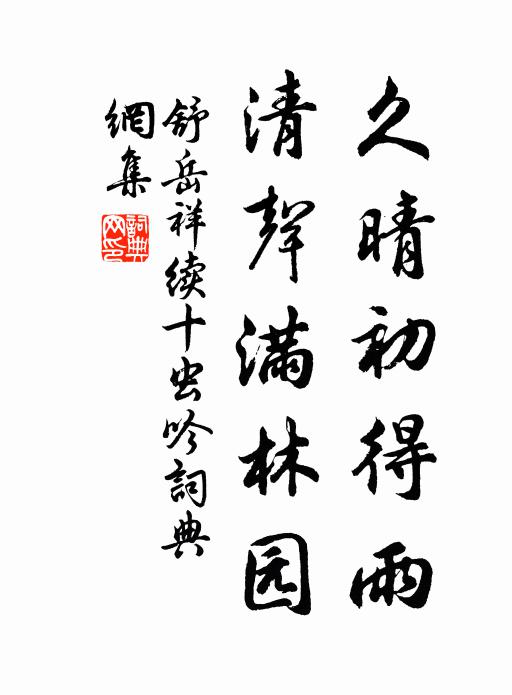 久晴初得雨
清聲满林园
舒岳祥续十虫吟詞典
網集
詞典网印